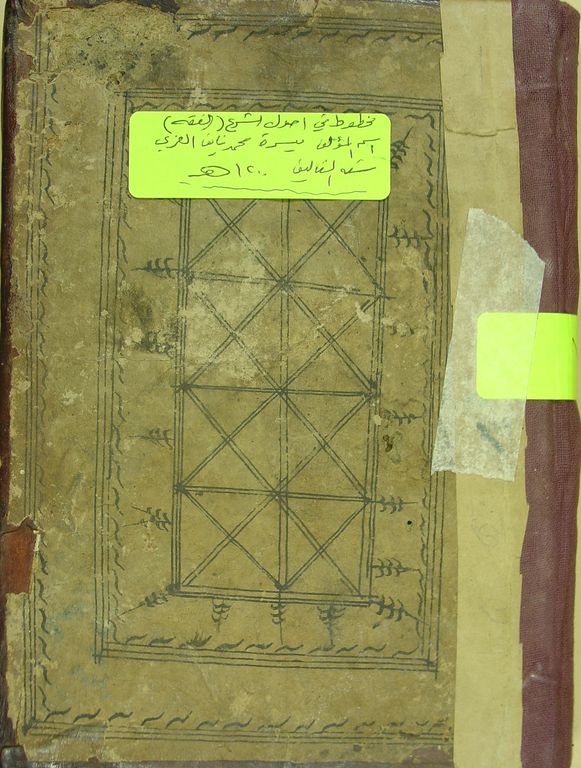 مخطوط في اصول الشرع (الفقه)
اسم المؤلف ميسرة محمد العزي
سنة التأليف ١٢٠٠ هـ